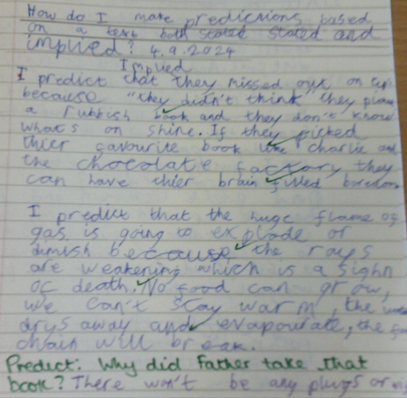 How do I make predictions based
on a text both stated stated and
implied? 4.9.2024
Implied
I predict that they missed out on
because "they didn't think they
a rubbish book and they don't know
what's on shine. If they picked
thier favourite book like charlie and
the chocolate factory they
can have thier brain filled
I predict that the huge flame of
gas is going to explode or
dimish because the rays
are weakening which is a sighn
of death. No food can grow,
we can't stay warm, the
drys away and evapourate, the
chain will break.
Predict: Why did Father take that
book? There won't be any plugs or